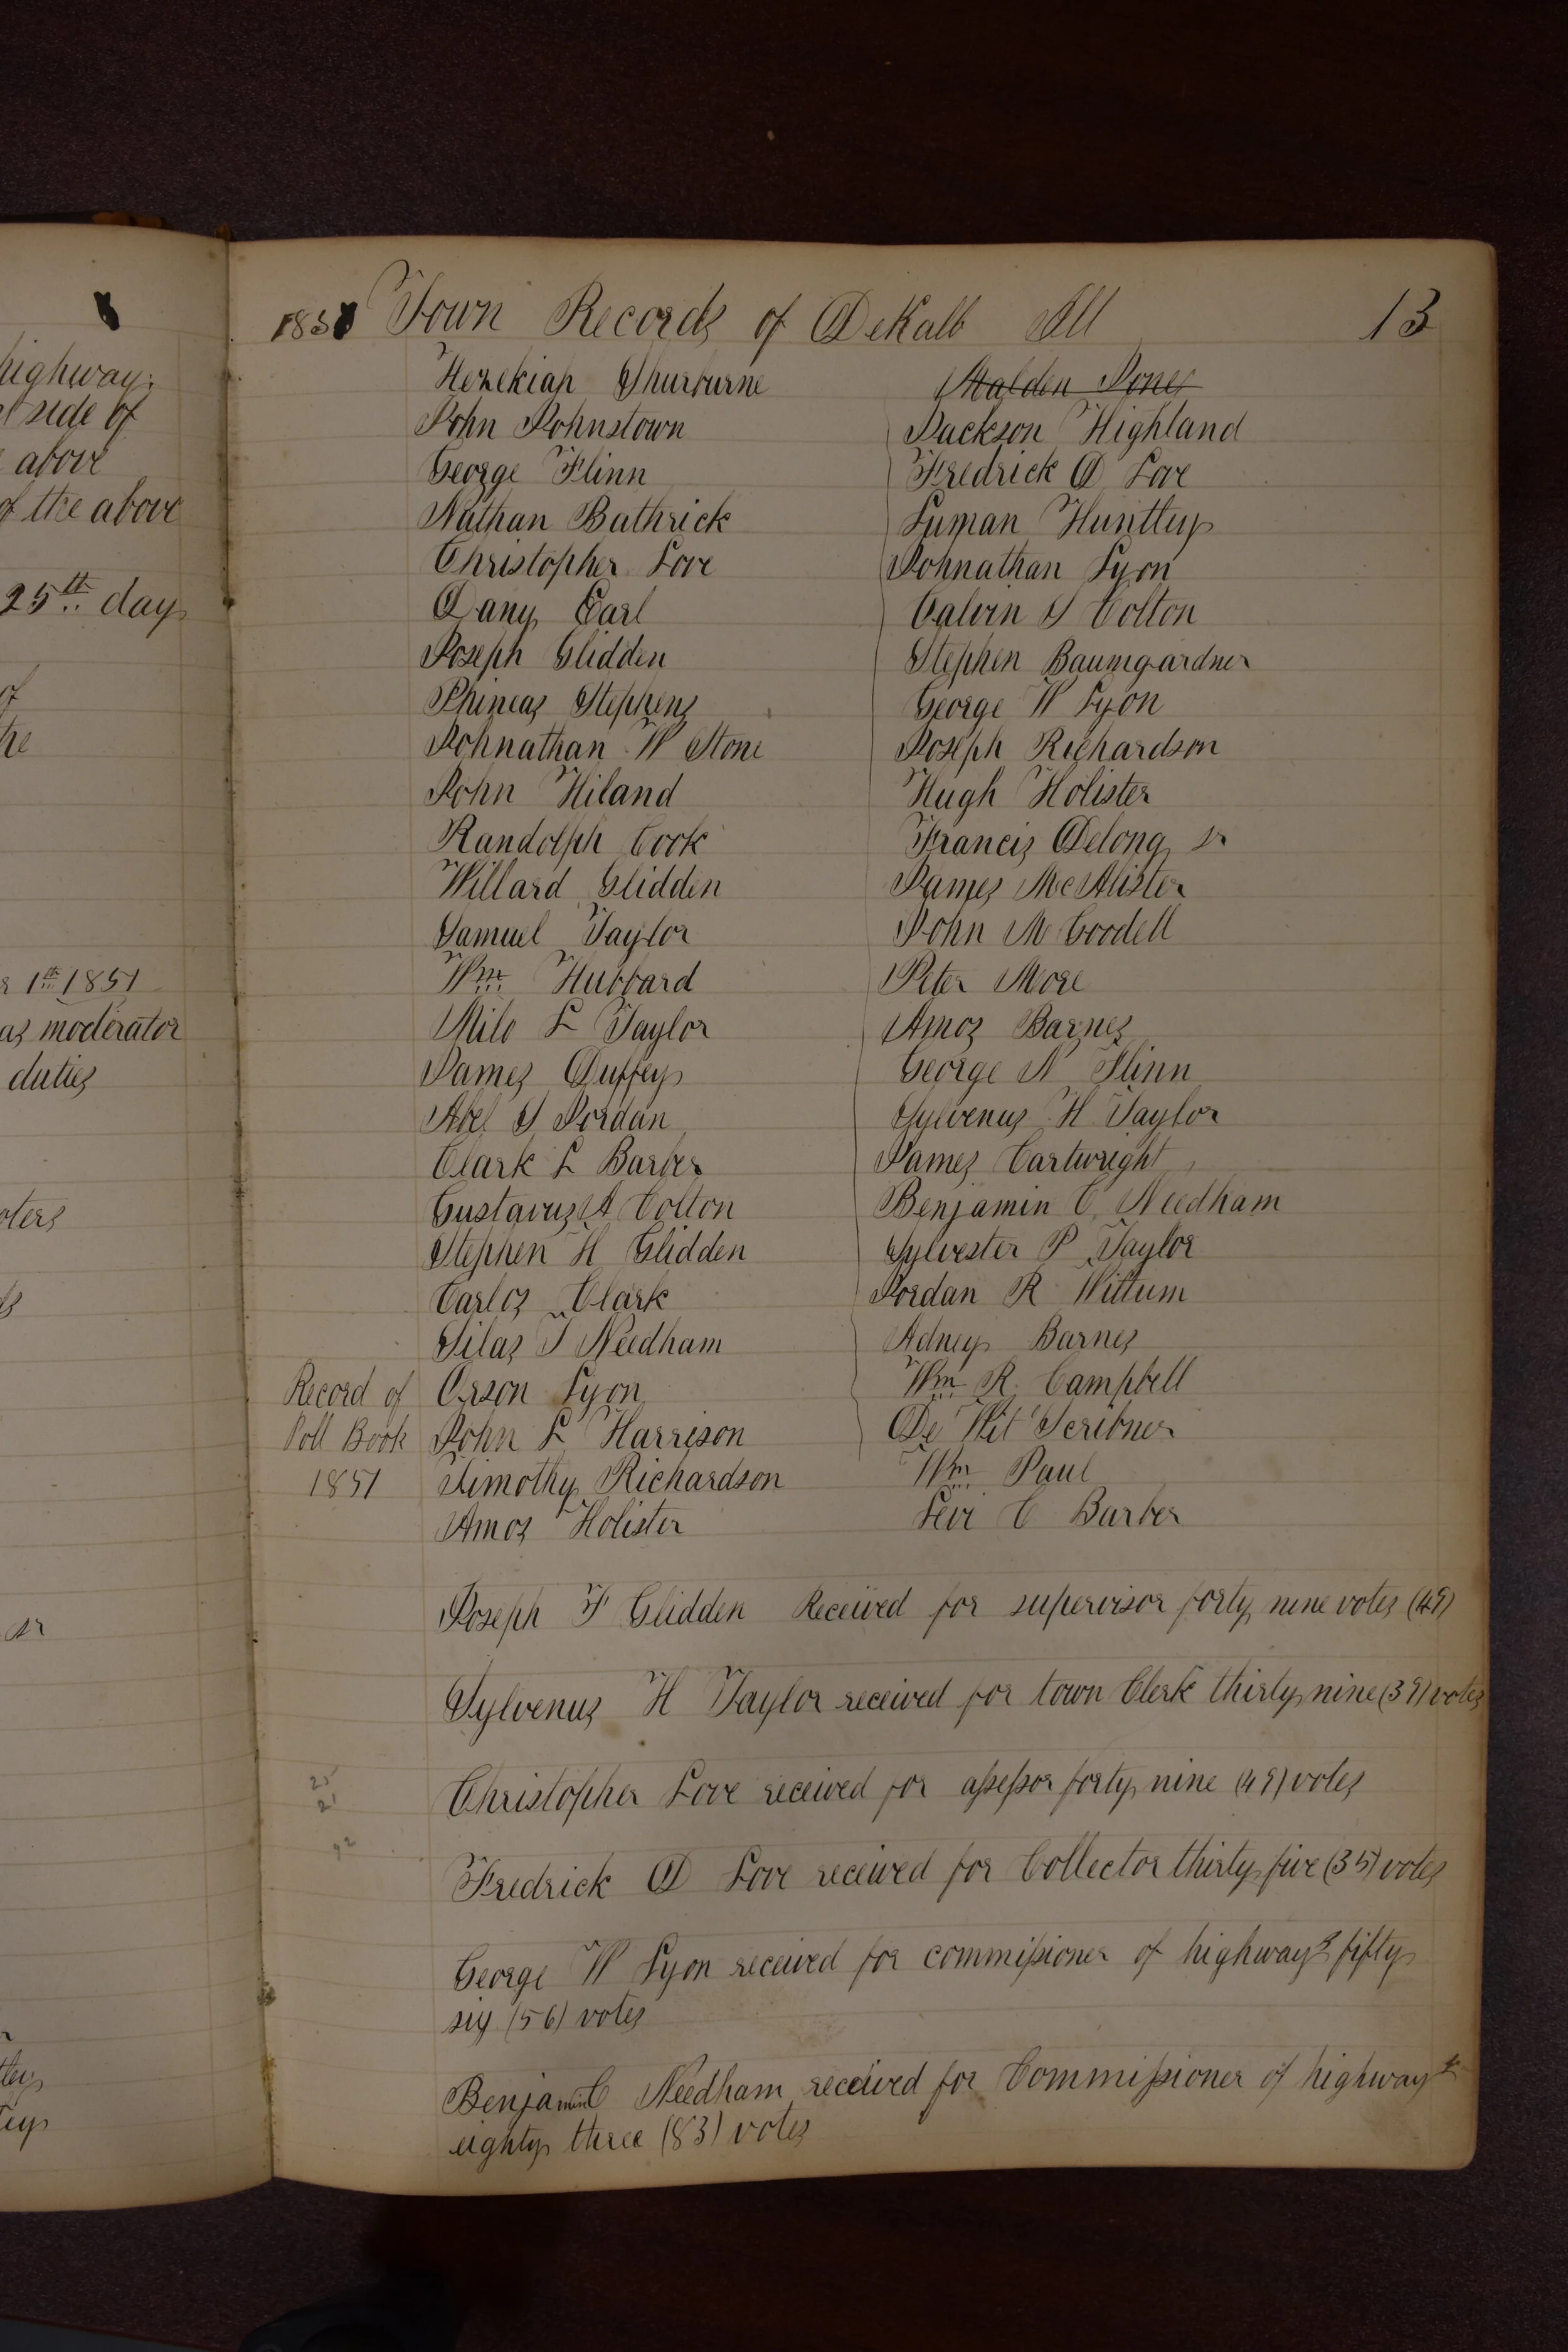 highway.
side of
above
of the above
25th day
of
the
1st 1851
as moderator
duties
1851 Town Records of DeKalb Ill 13
Hezekiah Shurburne
John Johnstown
George Flinn
Nathan Bathrick
Christopher Love
Dany Earl
Joseph Glidden
Phineas Stephens
Johnathan W Stone
John Hiland
Randolph Cook
Willard Glidden
Samuel Taylor
Wm Hubbard
Milo L Taylor
James Duffey
Abel S Jordan
Clark L Barber
Gustavus A Colton
Stephen H Glidden
Carlos Clark
Silas T Needham
Record of Orson Lyon
Poll Book John L Harrison
1851 Timothy Richardson
Amos Holister
Malden Jones
Jackson Highland
Fredrick D Love
Lyman Huntley
Johnathan Lyon
Calvin S Colton
Stephen Baumgardner
George W Lyon
Joseph Richardson
Hugh Holister
Francis Delong sr
James McAlister
John M Goodell
Peter More
Amos Barnes
George N Flinn
Sylvenus H Taylor
James Cartwright
Benjamin C Needham
Sylvester P Taylor
Jordan R Wittum
Adney Barnes
Wm R Campbell
De Wit Scribner
Wm Paul
Levi C Barber
Joseph F Glidden Received for supervisor forty nine votes (49)
Sylvenus H Taylor received for town Clerk thirty nine (39) votes
Christopher Love received for assessor forty nine (49) votes
Fredrick D Love received for Collector thirty five (35) votes
George W Lyon received for commissioner of highways fifty
six (56) votes
Benjamin C Needham received for Commissioner of highways
eighty three (83) votes